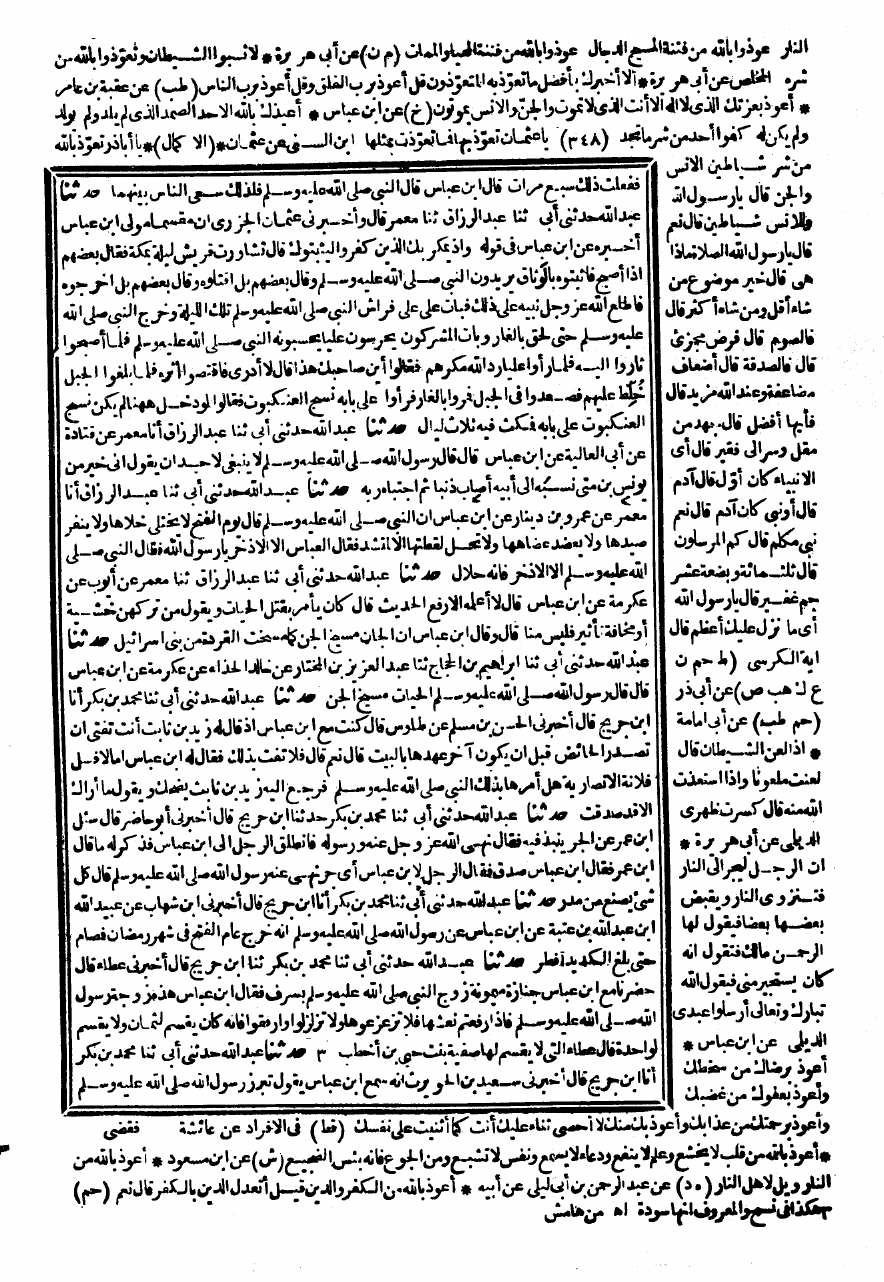 النار عوذوا بالله من فتنة المسيح الدجال عوذوا بالله من فتنة المحيا والممات (م ن) عن أبى هريرة * لا تسبوا الشيطان وتعوّذوا بالله من
شره المخلص عن أبى هريرة * ألا أخبرك بأفضل ما تعوّذ به المتعوّذون قل أعوذ برب الفلق وقل أعوذ برب الناس (طب) عن عقبة بن عامر
* أعوذ بعزتك الذى لا اله الا أنت الذى لا تموت والجن والانس يموتون (خ) عن ابن عباس * أعيذك بالله الاحد الصمد الذى لم يلد ولم يولد
ولم يكن له كفوا أحد من شر ما تجد (٣٤٨) يا عثمان تعوّذ بها فما تعوّذت بمثلها ابن السنى عن عثمان * (الا كمال) * يا أباذر تعوّذ بالله
من شر شياطين الانس
والجن قال يارسول الله
وللانس شياطين قال نعم
قال يارسول الله الصلاة ماذا
هى قال خير موضوع من
شاء أقل ومن شاء أكثر قال
فالصوم قال فرض مجزئ
قال فالصدقة قال أضعاف
مضاعفة وعند الله مزيد قال
فأيها أفضل قال جهد من
مقل وسر الى فقير قال أى
الانبياء كان أوّل قال آدم
قال أونبى كان آدم قال نعم
نبى مكلم قال كم المرسلون
قال ثلثمائة وبضعة عشر
جم غفير قال يارسول الله
أى ما نزل عليك أعظم قال
آية الكرسى (ط حم ن
ع ك هب ص) عن أبى ذر
(حم طب) عن أبى امامة
* اذا لعن الشيطان قال
لعنت ملعونا واذا استعذت
الله منه قال كسرت ظهرى
الديلمى عن أبى هريرة *
ان الرجل ليجر الى النار
فتنزوى النار ويقبض
بعضها بعضا فيقول لها
الرحمن مالك فتقول انه
كان يستجير منى فيقول الله
تبارك وتعالى أرسلوا عبدى
الديلمى عن ابن عباس *
أعوذ برضاك من سخطك
وأعوذ بعفوك من غضبك
ففعلت ذلك سبع مرات قال ابن عباس قال النبى صلى الله عليه وسلم فلذلك سعى الناس بينهما حدثنا
عبد الله حدثنى أبى ثنا عبد الرزاق ثنا معمر قال وأخبرنى عثمان الجزرى ان مقسما مولى ابن عباس
أخبره عن ابن عباس فى قوله واذ يمكر بك الذين كفروا ليثبتوك قال تشاورت قريش ليلة بمكة فقال بعضهم
اذا أصبح فاثبتوه بالوثاق يريدون النبى صلى الله عليه وسلم وقال بعضهم بل اقتلوه وقال بعضهم بل اخرجوه
فاطلع الله عز وجل نبيه على ذلك فبات على على فراش النبى صلى الله عليه وسلم تلك الليلة وخرج النبى صلى الله
عليه وسلم حتى لحق بالغار وبات المشركون يحرسون عليا يحسبونه النبى صلى الله عليه وسلم فلما أصبحوا
ثاروا اليه فلما رأوا عليا رد الله مكرهم فقالوا أين صاحبك هذا قال لا أدرى فاقتصوا أثره فلما بلغوا الجبل
خلط عليهم فصعدوا فى الجبل فمروا بالغار فرأوا على بابه نسج العنكبوت فقالوا لو دخل ههنا لم يكن نسج
العنكبوت على بابه فمكث فيه ثلاث ليال حدثنا عبد الله حدثنى أبى ثنا عبد الرزاق أنا معمر عن قتادة
عن أبى العالية عن ابن عباس قال قال رسول الله صلى الله عليه وسلم لا ينبغى لاحد ان يقول انى خير من
يونس بن متى نسبه الى أبيه أصاب ذنبا ثم اجتباه ربه حدثنا عبد الله حدثنى أبى ثنا عبد الرزاق أنا
معمر عن عمرو بن دينار عن ابن عباس ان النبى صلى الله عليه وسلم قال يوم الفتح لا يختلى خلاها ولا ينفر
صيدها ولا يعضد عضاهها ولا تحل لقطتها الا لمنشد فقال العباس الا الاذخر يارسول الله فقال النبى صلى
الله عليه وسلم الا الاذخر فانه حلال حدثنا عبد الله حدثنى أبى ثنا عبد الرزاق ثنا معمر عن أيوب عن
عكرمة عن ابن عباس قال لا أعلمه الا رفع الحديث قال كان يأمر بقتل الحيات ويقول من تركهن خشية
أو مخافة تأثير فليس منا قال وقال ابن عباس ان الجان مسيخ الجن كما مسخت القردة من بنى اسرائيل حدثنا
عبد الله حدثنى أبى ثنا ابراهيم بن الحجاج ثنا عبد العزيز بن المختار عن خالد الحذاء عن عكرمة عن ابن عباس
قال قال رسول الله صلى الله عليه وسلم الحيات مسيخ الجن حدثنا عبد الله حدثنى أبى ثنا محمد بن بكر أنا
ابن جريج قال أخبرنى الحسن بن مسلم عن طاوس قال كنت مع ابن عباس اذ قال له زيد بن ثابت أنت تفتى ان
تصدر الحائض قبل ان يكون آخر عهدها بالبيت قال نعم قال فلا تفت بذلك فقال له ابن عباس اما لا فسل
فلانة الانصارية هل أمرها بذلك النبى صلى الله عليه وسلم فرجع اليه زيد بن ثابت يضحك ويقول ما أراك
الا قد صدقت حدثنا عبد الله حدثنى أبى ثنا محمد بن بكر حدثنا ابن جريج قال أخبرنى أبو حاضر قال سئل
ابن عمر عن الجر ينبذ فيه فقال نهى الله عز وجل عنه ورسوله فانطلق الرجل الى ابن عباس فذكر له ما قال
ابن عمر فقال ابن عباس صدق فقال الرجل لابن عباس أى جر نهى عنه رسول الله صلى الله عليه وسلم قال كل
شئ يصنع من مدر حدثنا عبد الله حدثنى أبى ثنا محمد بن بكر أنا ابن جريج قال أخبرنى ابن شهاب عن عبيد الله
ابن عبد الله بن عتبة عن ابن عباس عن رسول الله صلى الله عليه وسلم انه خرج عام الفتح فى شهر رمضان فصام
حتى بلغ الكديد أفطر حدثنا عبد الله حدثنى أبى ثنا محمد بن بكر ثنا ابن جريج قال أخبرنى عطاء قال
حضرنا مع ابن عباس جنازة ميمونة زوج النبى صلى الله عليه وسلم بسرف فقال ابن عباس هذه زوجة رسول
الله صلى الله عليه وسلم فاذا رفعتم نعشها فلا تزعزعوها ولا تزلزلوا وارفقوا فانه كان يقسم لثمان ولا يقسم
لواحدة قال عطاء التى لا يقسم لها صفية بنت حيى بن أخطب ٣ حدثنا عبد الله حدثنى أبى ثنا محمد بن بكر
أنا ابن جريج قال أخبرنى سعيد بن الحويرث انه سمع ابن عباس يقول تبرز رسول الله صلى الله عليه وسلم
وأعوذ برحمتك من عذابك وأعوذ بك منك لا أحصى ثناء عليك أنت كما أثنيت على نفسك (قط) فى الافراد عن عائشة فقضى
* أعوذ بالله من قلب لا يخشع وعلم لا ينفع ودعاء لا يسمع ونفس لا تشبع ومن الجوع فانه بئس الضجيع (ش) عن ابن مسعود * أعوذ بالله من
النار ويل لاهل النار (ه د) عن عبد الرحمن بن أبى ليلى عن أبيه * أعوذ بالله من الكفر والدين قيل أتعدل الدين بالكفر قال نعم (حم)
٣ هكذا فى نسخ والمعروف انها سودة اه من هامش